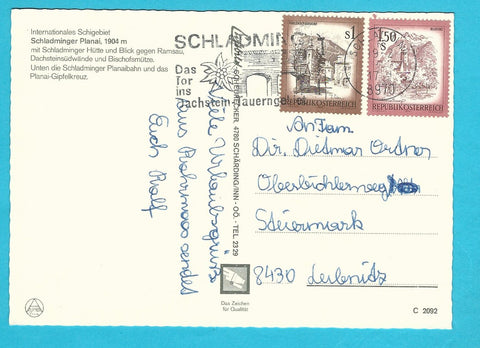 Internationales Schigebiet
Schladminger Planai, 1904 m
mit Schladminger Hütte und Blick gegen Ramsau,
Dachsteinsüdwände und Bischofsmütze.
Unten die Schladminger Planaibahn und das
Planai-Gipfelkreuz.
SCHLADMING
Das
Tor
ins
Dachstein-Tauerngebiet
S1
REPUBLIK ÖSTERREICH
1.50
S
REPUBLIK ÖSTERREICH
8970
4780 SCHÄRDING/INN - OÖ. - TEL 2329
Viele Urlaubsgrüße
aus Rohrmoos sendet
Euch Rolf
An Fam.
Dir. Dietmar Ortner
Oberbüchlerweg
Steiermark
8430 Leibnitz
Das Zeichen
für Qualität
C 2092